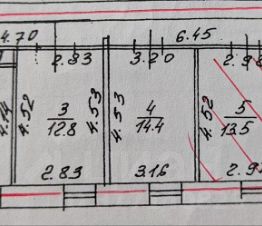 4.70 6.45
2.83 3.20 2.9
4.52 3 4.53 4.53 4 4.52 5
12.8 14.4 13.5
2.83 3.16 2.9